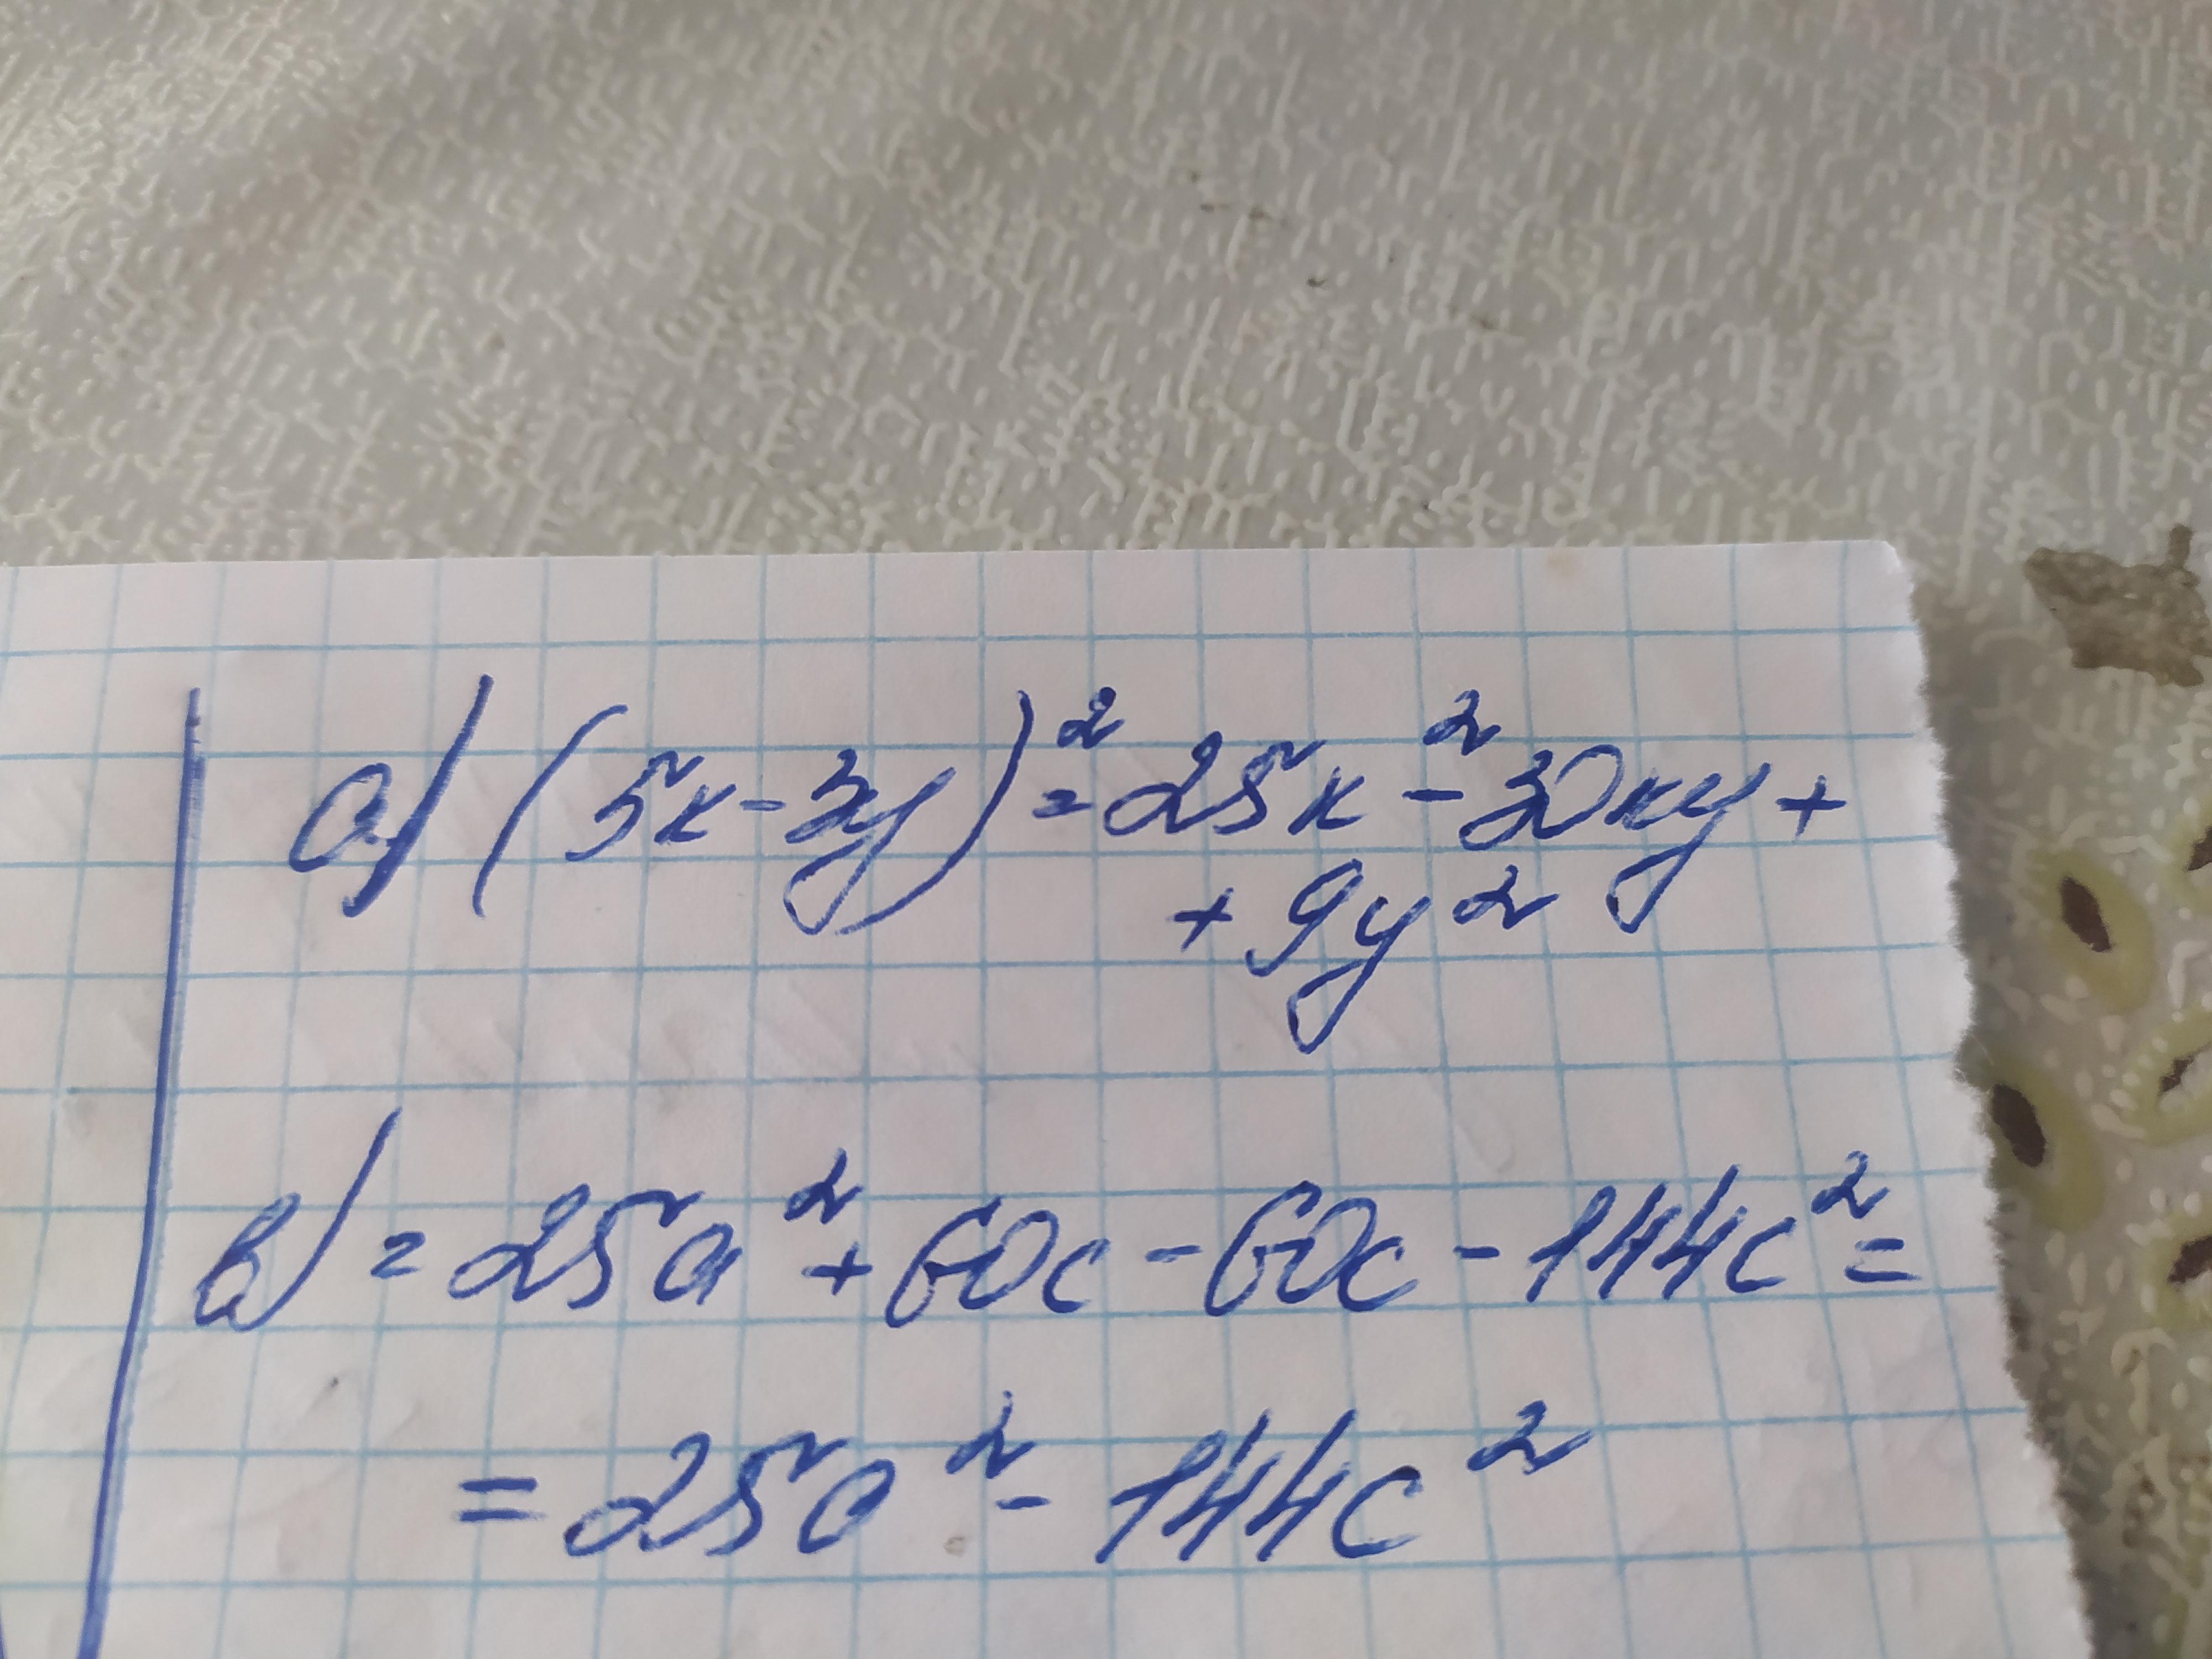 а) (5x-3y)²=25x²-30xy+
+9y²
в) =25a²+60c-60c-144c²=
=25a²-144c²